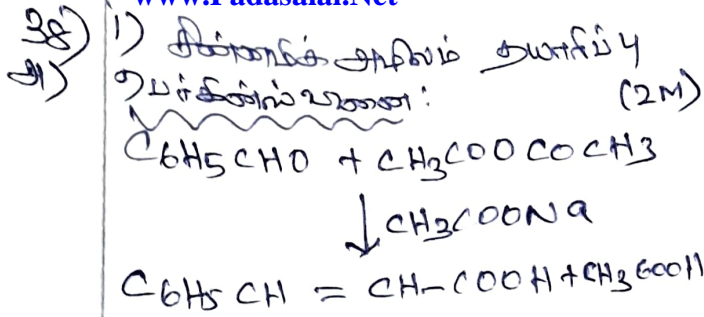 www.Padasalai.Net
38) 1) சின்னமிக் அமிலம் தயாரிப்பு
அ) பெர்கின்ஸ் வினை: (2M)
C6H5CHO + CH3COOCOCH3
↓ CH3COONa
C6H5CH = CH-COOH + CH3COOH